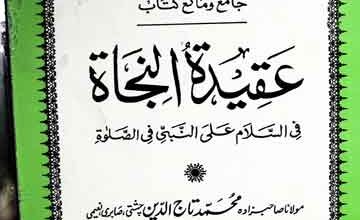 جامع ومانع کتاب
عقیدۃ النجاۃ
فی السلام علی النبی فی الصلوٰۃ
مولانا صاحبزادہ محمد تاج الدین چشتی، صابری نعیمی